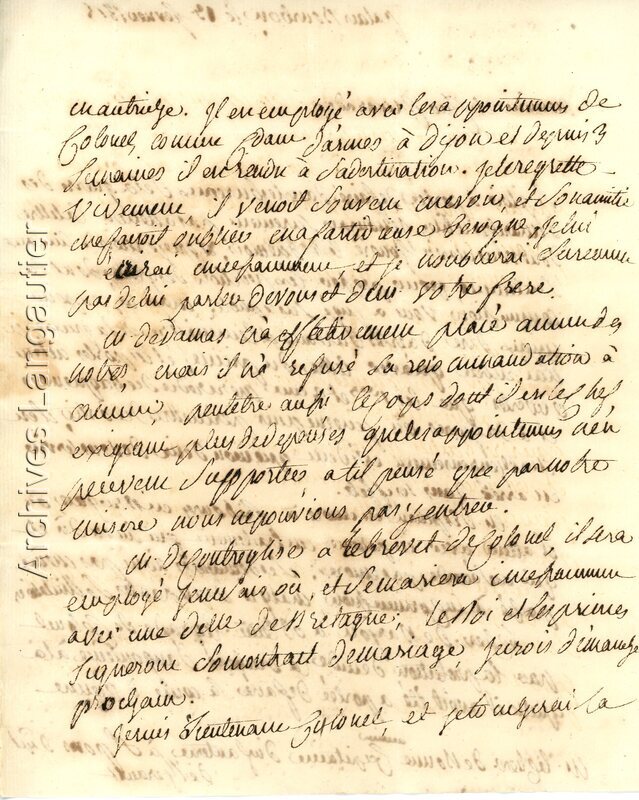 il est employé avec les appointemens de
Colonel, comme d'armes à Dijon et depuis 3
semaines il est rendu à sa destination. je le regrette
vivement, il venoit souvent me voir, et son amitié
me faisoit oublier ma besogne, je lui
écrirai incessamment, et je n'oublierai surement
pas de lui parler de vous et de votre frere.
M. de Damas n'a effectivement placé aucun des
notres, mais il n'a refusé sa recommandation à
aucun, peutetre aussi le corps dont il est le chef
exigeant plus de depenses que les appointemens n'en
peuvent supporter a t il pensé que par notre
misere nous ne pouvions pas y entrer.
M. de Contreglise a le brevet de Colonel, il sera
employé je ne sais où, et se mariera incessamment
avec une dlle de Bretagne; le Roi et les princes
signeront son contrat de mariage, je crois dimanche
prochain.
je suis Lieutenant Colonel, et je toucherai la
Archives Langautier